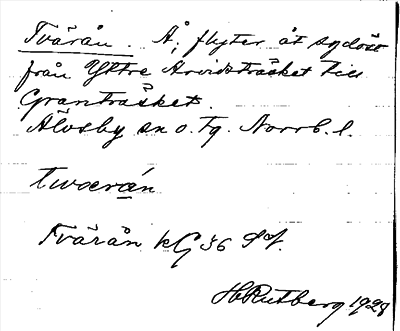 Tvärån. Å, flyter åt sydost
från Yttre Arvidsträsket till
Granträsket.
Älvsby sn o. tg. Norrb. l.
twœrån
Tvärån kG 36 Sf.
H Rutberg 1928